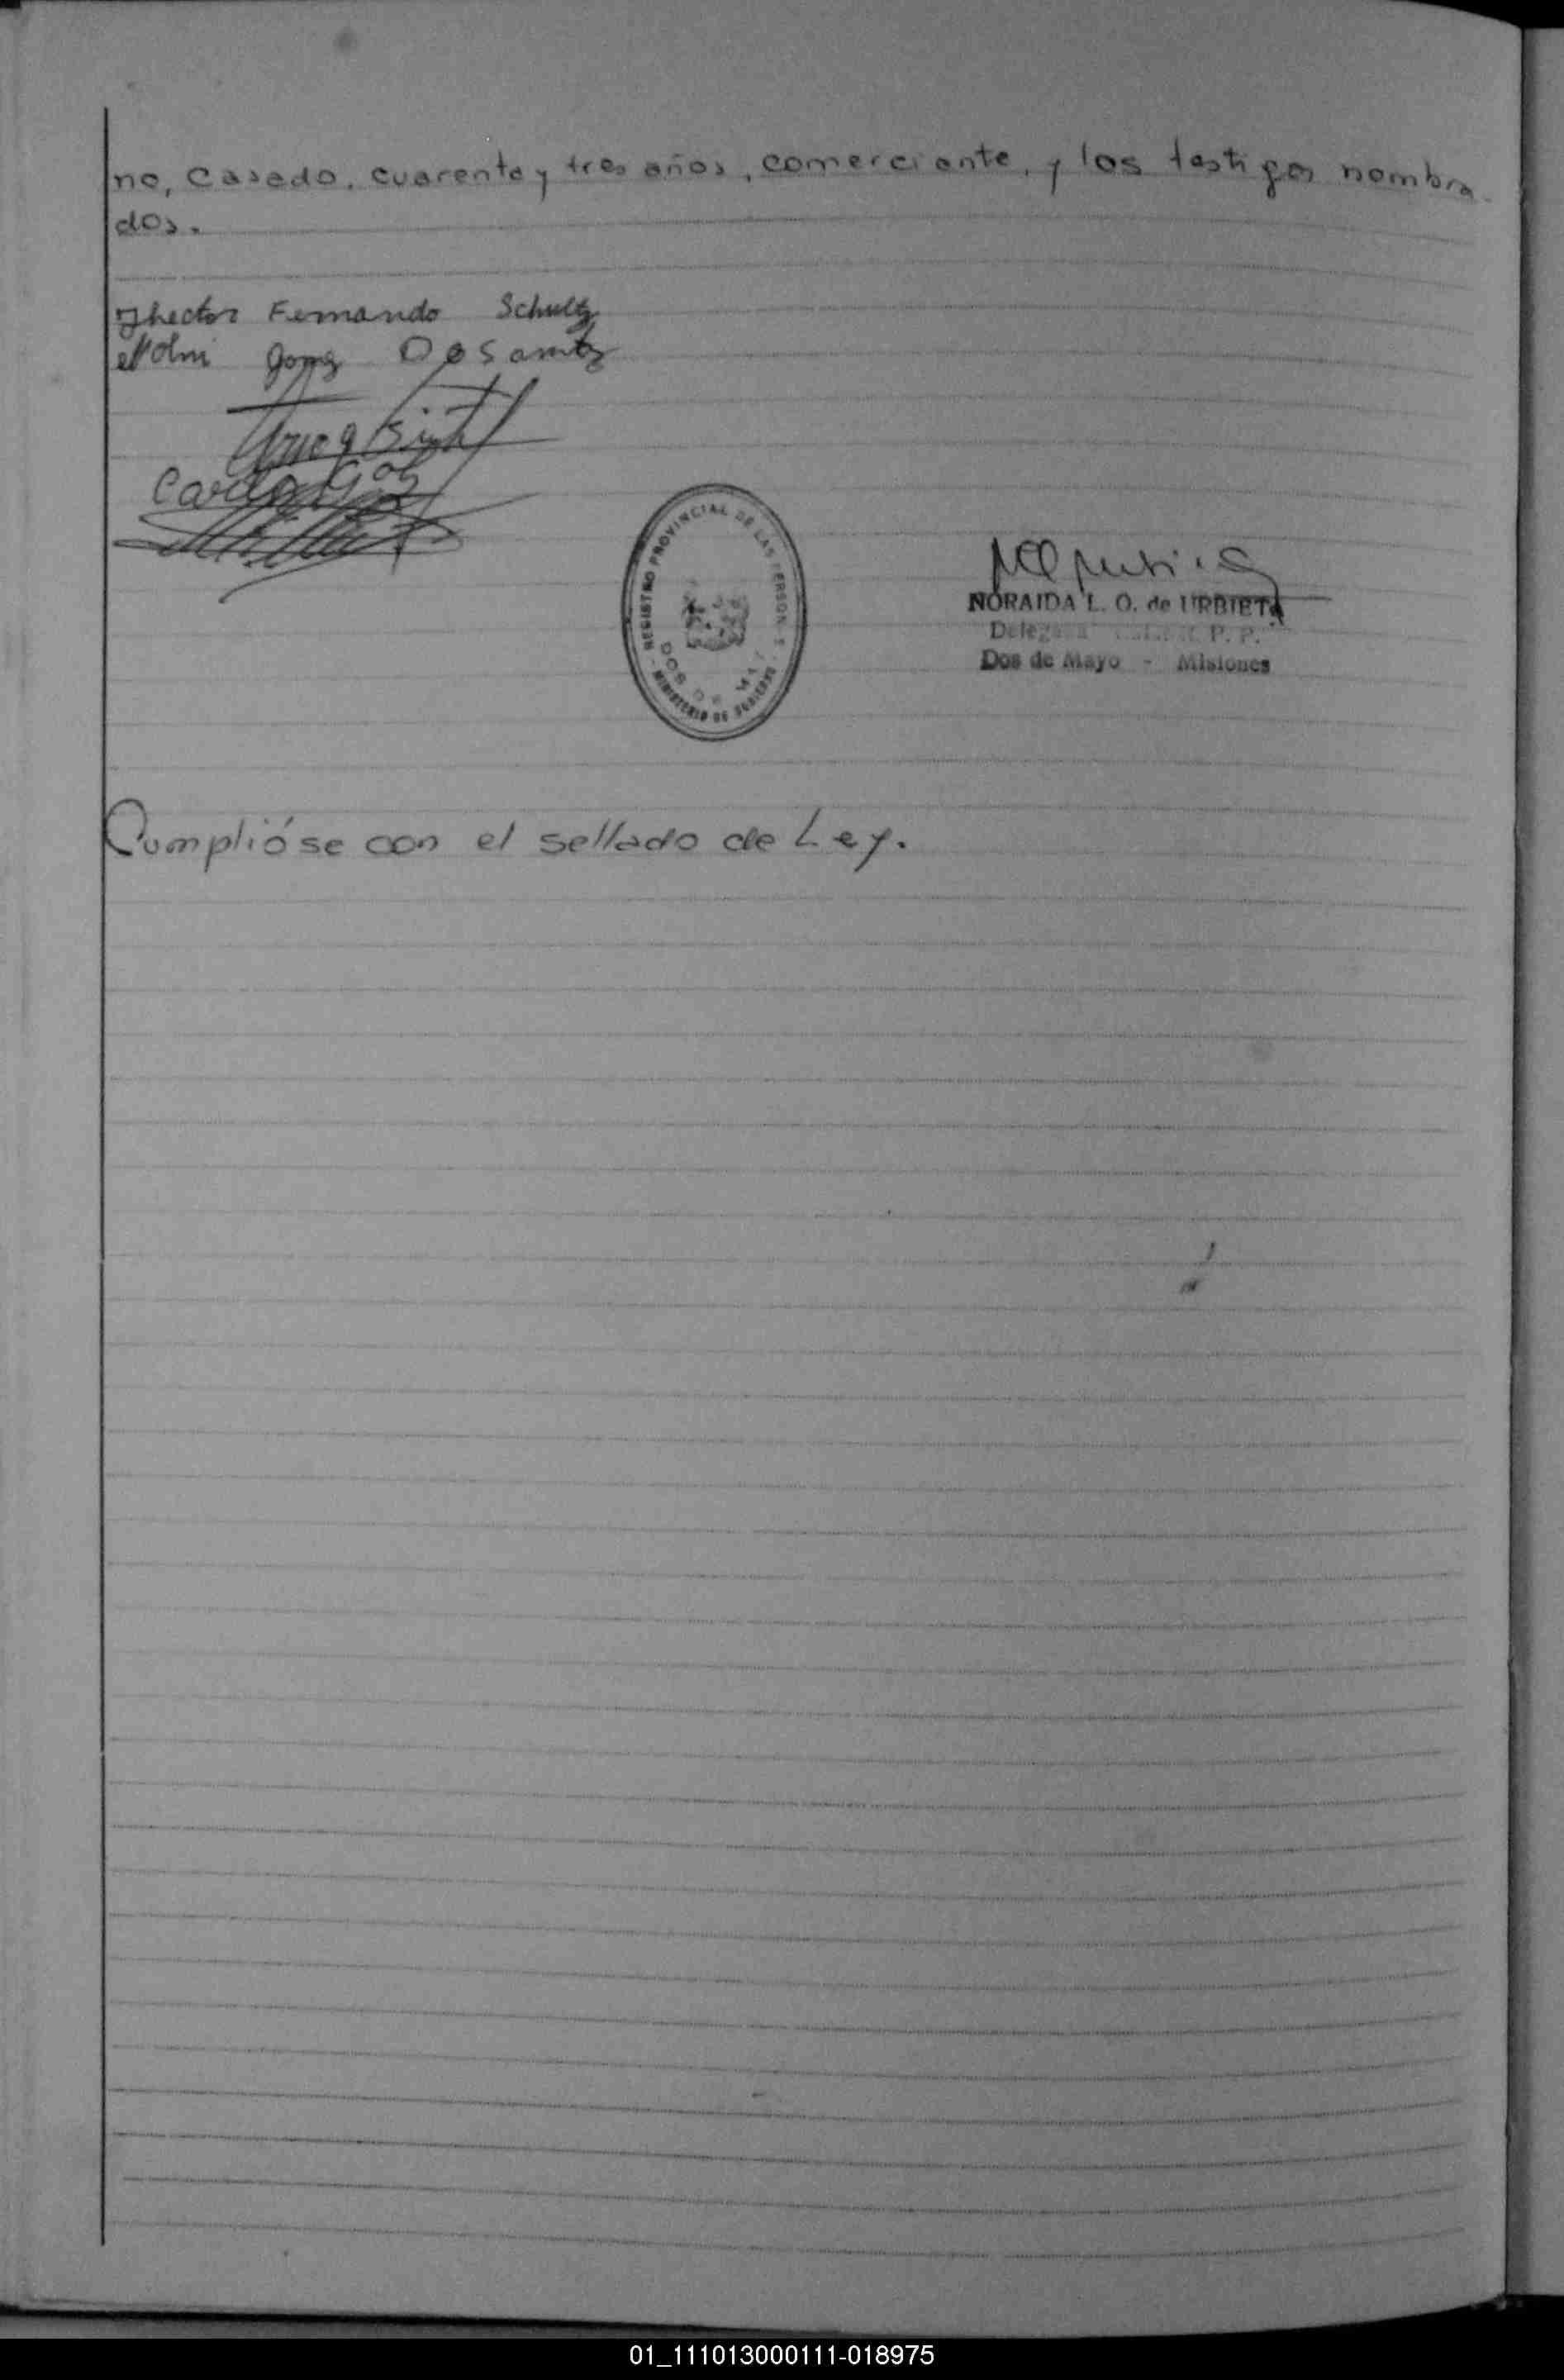 no, casado, cuarenta y tres años, comerciante, y los testigos nombra-
dos.
Jhector Fernando Schultz
Nolni Gomz DOSantz
Carlos
REGISTRO PROVINCIAL DE LAS PERSONAS
DOS DE MAYO
MINISTERIO DE GOBIERNO
NORAIDA L. O. de URBIETA
Delegada R. P. P.
Dos de Mayo - Misiones
Cumplióse con el sellado de Ley.
01_111013000111-018975